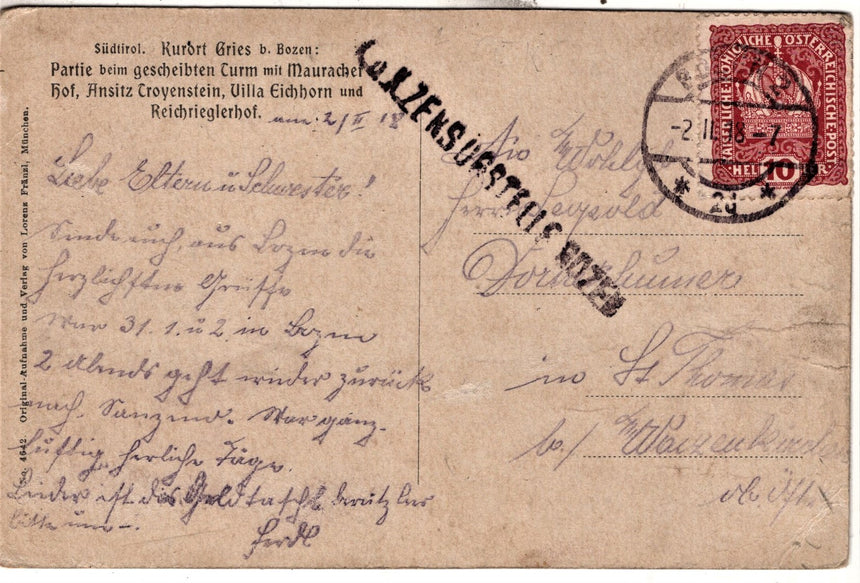 Südtirol. Kurort Gries b. Bozen:
Partie beim gescheibten Turm mit Mauracher
Hof, Ansitz Troyenstein, Villa Eichhorn und
Reichrieglerhof.
am 2/II 18
Liebe Eltern u Schwester!
Sende euch, aus Bozen die
herzlichsten Grüsse
War 31. 1. u 2 in Bozen
2 Abends geht wieder zurück
nach. War ganz
luftig herliche Tage.
Leider ist das Geldtascht
bitte um –
Ferdl
No. 4642. Original-Aufnahme und Verlag von Lorenz Fränzl, München.
K.u.K. ZENSURSTELLE BOZEN
KAISERLICHE KÖNIGLICHE ÖSTERREICHISCHE POST
HELLER
10
-2.II.18-7
* 2d *
An
Herrn Leopold
in St Thomas
b./ Waizenkirchen
ob. Öst.